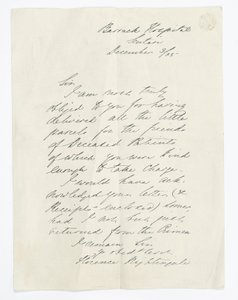 Barrack Hospital
Scutari
December 3/55
Sir
I am most truly
obliged to you for having
delivered all the little
parcels for the friends
of Deceased Patients
of which you were kind
enough to take charge.
I would have ack
nowledged your letter (&
Receipts enclosed) sooner
had I not but just
returned from the Crimea
I remain Sir
Florence Nightingale